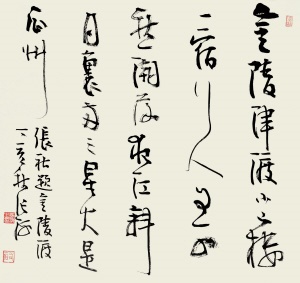 金陵津渡小山樓
一宿行人自可
愁潮落夜江斜
月裏兩三星火是
瓜州
張祜題金陵渡
丁亥秋